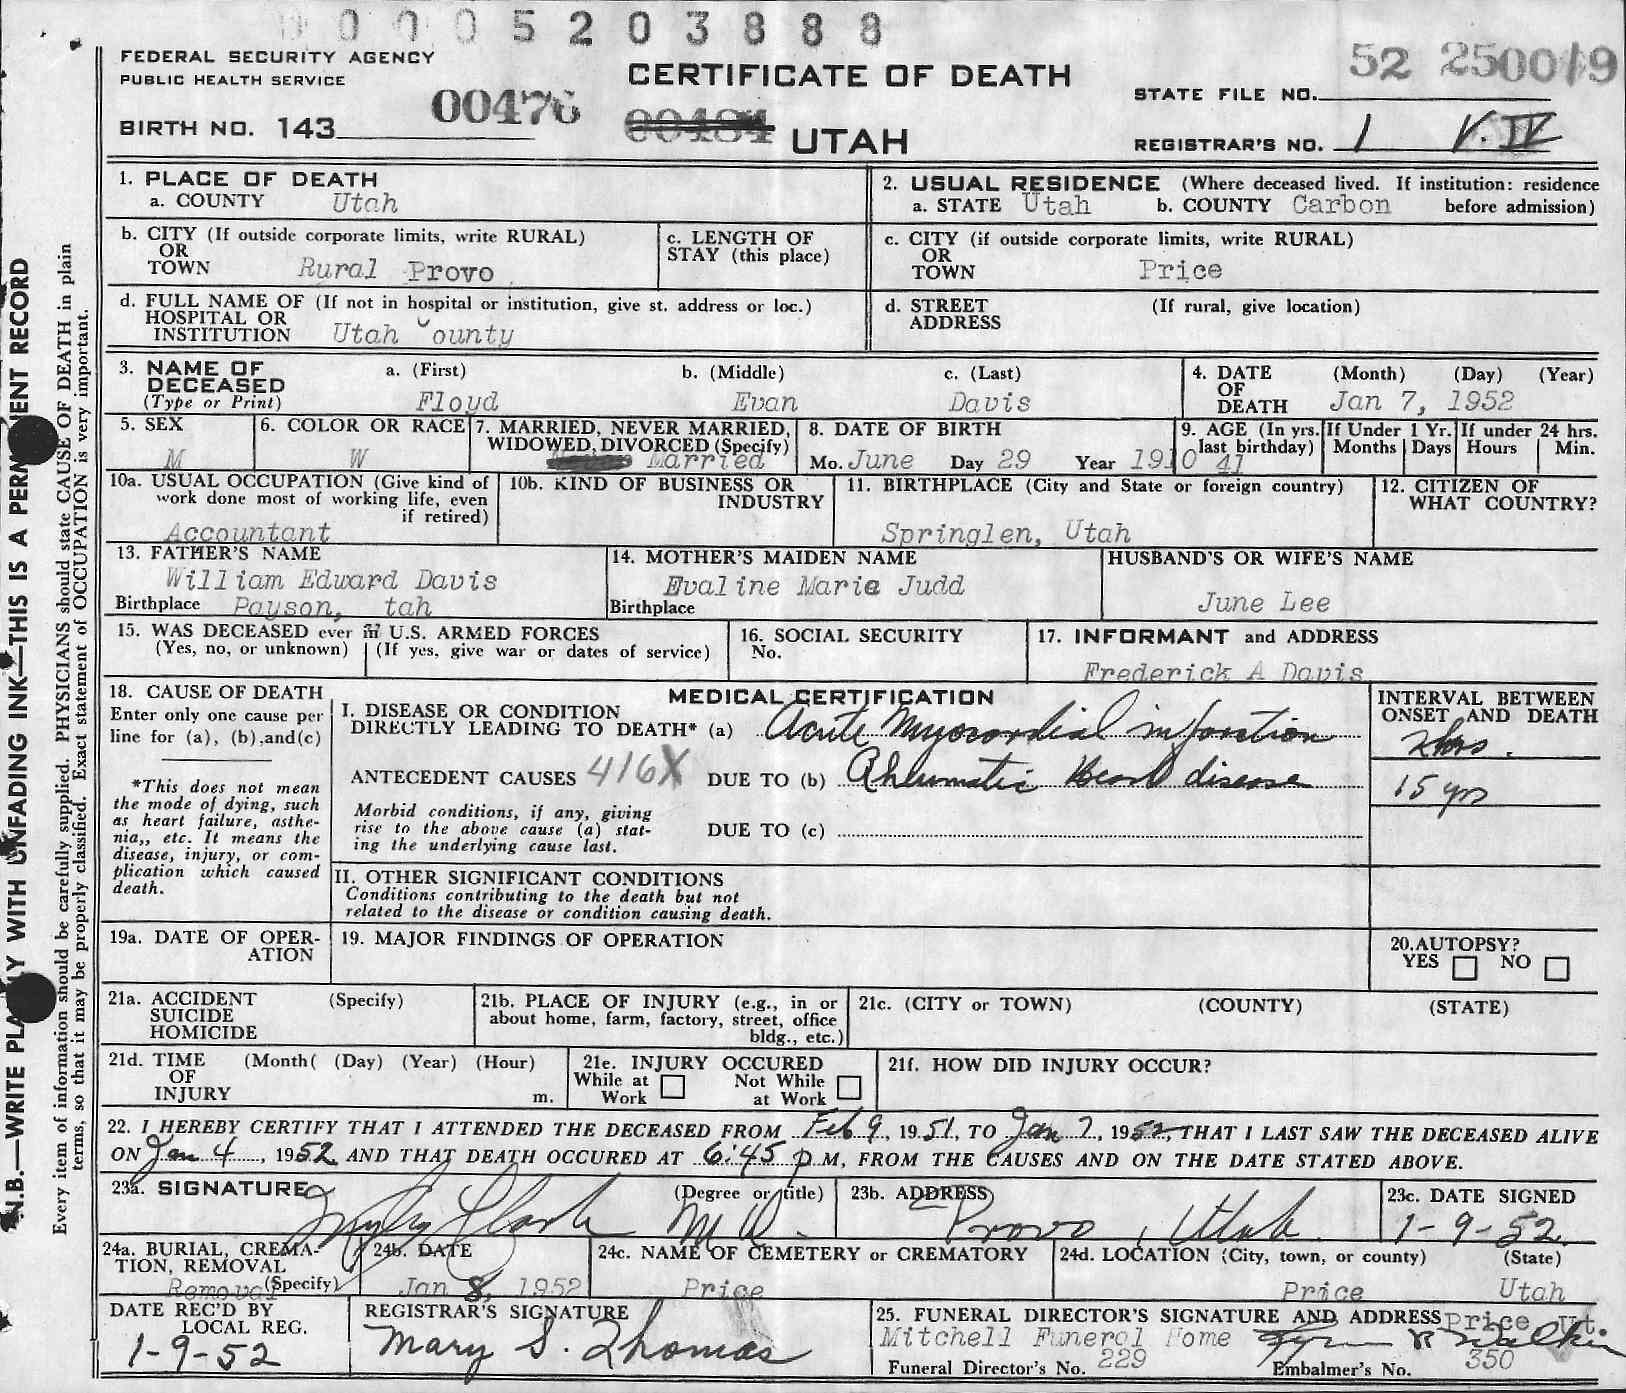 0005203888
FEDERAL SECURITY AGENCY
PUBLIC HEALTH SERVICE
BIRTH NO. 143
00476
00484
CERTIFICATE OF DEATH
UTAH
52 250019
STATE FILE NO.
REGISTRAR'S NO. 1 V. IV
1. PLACE OF DEATH
a. COUNTY Utah
2. USUAL RESIDENCE (Where deceased lived. If institution: residence
a. STATE Utah b. COUNTY Carbon before admission)
b. CITY (If outside corporate limits, write RURAL)
OR
TOWN Rural Provo
c. LENGTH OF
STAY (this place)
c. CITY (if outside corporate limits, write RURAL)
OR
TOWN Price
d. FULL NAME OF (If not in hospital or institution, give st. address or loc.)
HOSPITAL OR
INSTITUTION Utah County
d. STREET (If rural, give location)
ADDRESS
3. NAME OF a. (First) b. (Middle) c. (Last)
DECEASED
(Type or Print) Floyd Evan Davis
4. DATE (Month) (Day) (Year)
OF
DEATH Jan 7, 1952
5. SEX
M
6. COLOR OR RACE
W
7. MARRIED, NEVER MARRIED,
WIDOWED, DIVORCED (Specify)
Married
8. DATE OF BIRTH
Mo. June Day 29 Year 1910
9. AGE (In yrs.
last birthday)
41
If Under 1 Yr.
Months Days
If under 24 hrs.
Hours Min.
10a. USUAL OCCUPATION (Give kind of
work done most of working life, even
if retired)
Accountant
10b. KIND OF BUSINESS OR
INDUSTRY
11. BIRTHPLACE (City and State or foreign country)
Springlen, Utah
12. CITIZEN OF
WHAT COUNTRY?
13. FATHER'S NAME
William Edward Davis
Birthplace Payson, tah
14. MOTHER'S MAIDEN NAME
Evaline Marie Judd
Birthplace
HUSBAND'S OR WIFE'S NAME
June Lee
15. WAS DECEASED ever in U.S. ARMED FORCES
(Yes, no, or unknown) (If yes, give war or dates of service)
16. SOCIAL SECURITY
No.
17. INFORMANT and ADDRESS
Frederick A Davis
18. CAUSE OF DEATH
Enter only one cause per
line for (a), (b),and(c)
*This does not mean
the mode of dying, such
as heart failure, asthe-
nia,, etc. It means the
disease, injury, or com-
plication which caused
death.
MEDICAL CERTIFICATION
I. DISEASE OR CONDITION
DIRECTLY LEADING TO DEATH* (a) Acute Myocordial infarction
ANTECEDENT CAUSES 416X DUE TO (b) Rheumatic Heart disease
Morbid conditions, if any, giving
rise to the above cause (a) stat-
ing the underlying cause last.
DUE TO (c)
INTERVAL BETWEEN
ONSET AND DEATH
2 hrs.
15 yrs
II. OTHER SIGNIFICANT CONDITIONS
Conditions contributing to the death but not
related to the disease or condition causing death.
19a. DATE OF OPER-
ATION
19. MAJOR FINDINGS OF OPERATION
20. AUTOPSY?
YES NO
21a. ACCIDENT (Specify)
SUICIDE
HOMICIDE
21b. PLACE OF INJURY (e.g., in or
about home, farm, factory, street, office
bldg., etc.)
21c. (CITY or TOWN) (COUNTY) (STATE)
21d. TIME (Month( (Day) (Year) (Hour)
OF
INJURY m.
21e. INJURY OCCURED
While at Work Not While at Work
21f. HOW DID INJURY OCCUR?
22. I HEREBY CERTIFY THAT I ATTENDED THE DECEASED FROM Feb 9, 1951, TO Jan 7, 1952, THAT I LAST SAW THE DECEASED ALIVE
ON Jan 4, 1952 AND THAT DEATH OCCURED AT 6:45 P M, FROM THE CAUSES AND ON THE DATE STATED ABOVE.
23a. SIGNATURE (Degree or title)
Clark M.D.
23b. ADDRESS
Provo, Utah.
23c. DATE SIGNED
1-9-52
24a. BURIAL, CREMA-
TION, REMOVAL
(Specify)
Removal
24b. DATE
Jan 8, 1952
24c. NAME OF CEMETERY or CREMATORY
Price
24d. LOCATION (City, town, or county) (State)
Price Utah
DATE REC'D BY
LOCAL REG.
1-9-52
REGISTRAR'S SIGNATURE
Mary S. Thomas
25. FUNERAL DIRECTOR'S SIGNATURE AND ADDRESS Price Ut
Mitchell Funeral Home
Funeral Director's No. 229 Embalmer's No. 350
N.B.—WRITE PLAINLY WITH UNFADING INK—THIS IS A PERMANENT RECORD
Every item of information should be carefully supplied. PHYSICIANS should state CAUSE OF DEATH in plain
terms, so that it may be properly classified. Exact statement of OCCUPATION is very important.